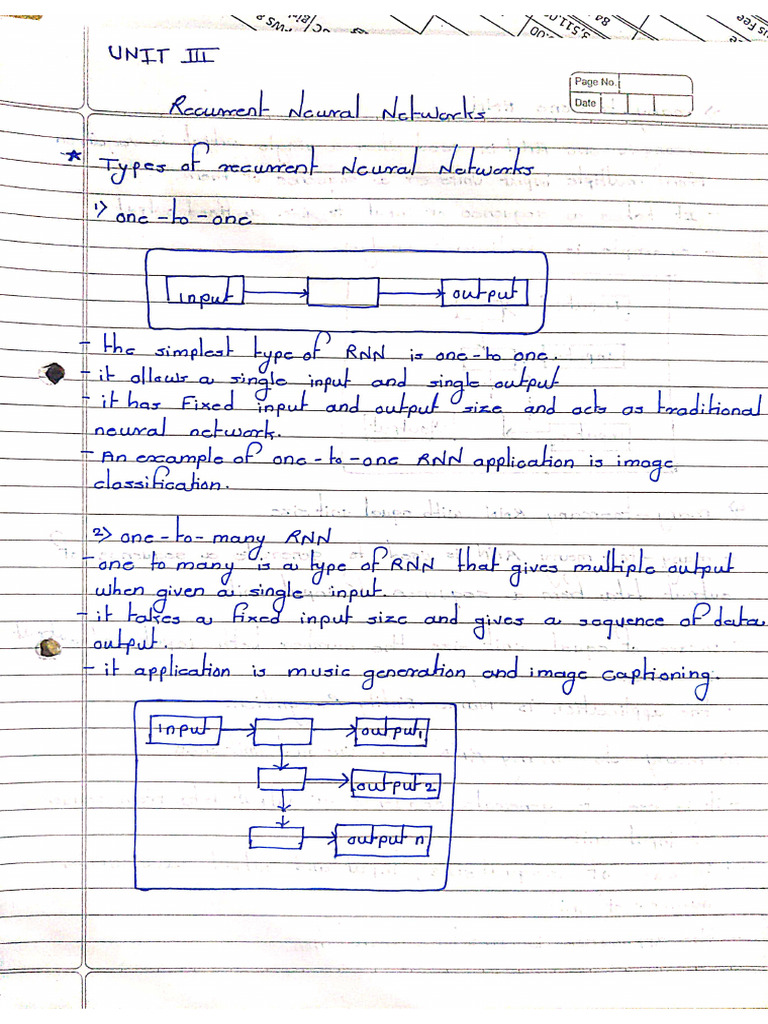 UNIT III
Page No.
Date
Recurrent Neural Networks
* Types of recurrent Neural Networks
1) one-to-one
input
output
- the simplest type of RNN is one-to one.
- it allows a single input and single output
- it has Fixed input and output size and acts as traditional
neural network.
- An example of one-to-one RNN application is image
classification.
2) one-to-many RNN
- one to many is a type of RNN that gives multiple output
when given a single input.
- it takes a fixed input size and gives a sequence of data
output.
- it application is music generation and image captioning.
input
output1
output 2
output n